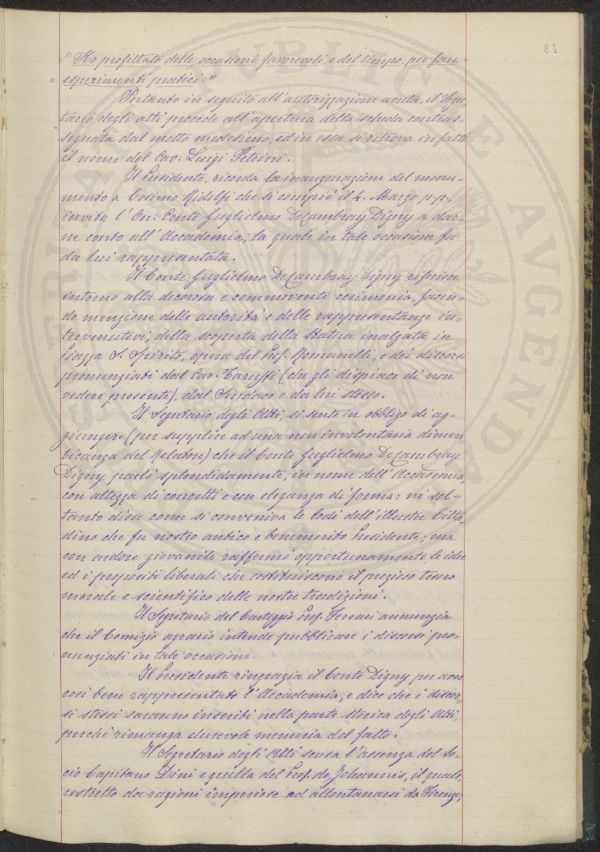 81
"Ho profittato delle occasioni favorevoli, e del tempo, per fare
"esperimenti pratici."
Pertanto in seguito all'autorizzazione avuta, il Segre-
tario degli atti procede all'apertura della scheda contras-
segnata dal motto medesimo, ed in essa si ritrova infatti
il nome del Cav. Luigi Petrini.
Il Presidente, ricorda la inaugurazione del monu-
mento a Cosimo Ridolfi che si compiè il 4. Marzo p.p.
invita l'On. Conte Guglielmo De Cambray Digny a dar-
ne conto all'Accademia, la quale in tale occasione fu
da lui rappresentata.
Il Conte Guglielmo De Cambray Digny riferisce
intorno alla decorosa e commovente cerimonia, facen-
do menzione delle autorità e delle rappresentanze in-
tervenutevi; della scoperta della statua inalzata in
Piazza S. Spirito, opera del Prof. Romanelli, e dei discorsi
pronunziati dal Cav. (che gli dispiace di non
vedere presente), dal Sindaco e da lui stesso.
Il Segretario degli Atti, si sente in obbligo di ag-
giungere (per supplire ad una non involontaria dimen-
ticanza del Relatore) che il Conte Guglielmo De Cambray
Digny parlò splendidamente, in nome dell'Accademia,
con altezza di concetti e con eleganza di forma: nè sol-
tanto disse come si conveniva le lodi dell'illustre Citta-
dino che fu nostro antico e benemerito Presidente; ma
con ardore giovanile raffermò opportunamente le idee
ed i propositi liberali che costituiscono il prezioso tesoro
morale e scientifico delle nostre tradizioni.
Il Segretario del Carteggio Prof. annunzia
che il Comizio agrario intende pubblicare i discorsi pro-
nunziati in tale occasione.
Il Presidente ringrazia il Conte Digny per aver
così bene rappresentato l'Accademia, e dice che i discor-
si stessi saranno inseriti nella parte storica degli Atti,
perchè rimanga durevole memoria del fatto.
Il Segretario degli Atti scusa l'assenza del So-
cio Capitano Dini e quella del Prof. de Johannis, il quale,
costretto da ragioni imperiose ad allontanarsi da Firenze,